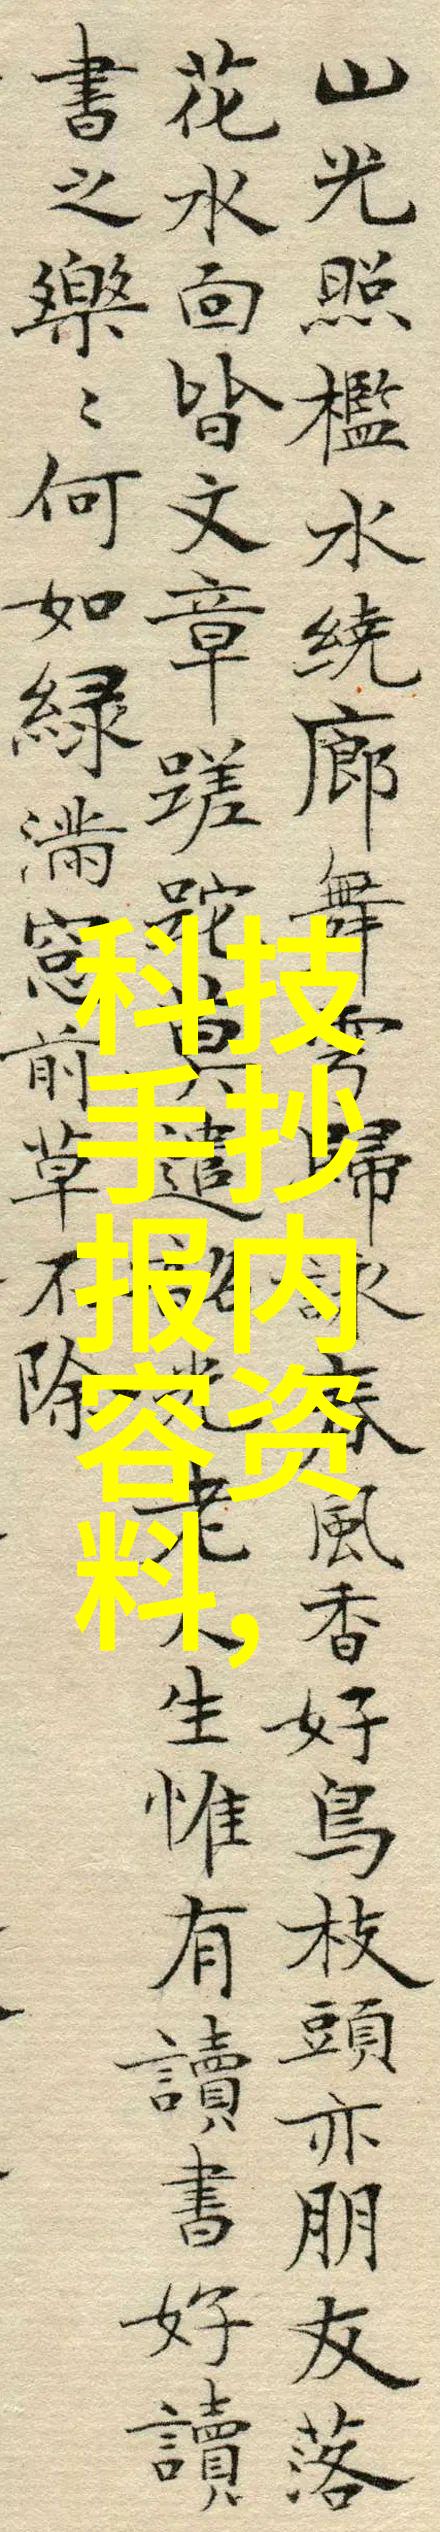 山光照檻水繞廊舞雩歸詠春風香好鳥枝頭亦朋友落
花水面皆文章蹉跎莫遣韶光老人生惟有讀書好讀
書之樂〻何如緑滿窓前草不除
科技
手抄
报内
容资
料,